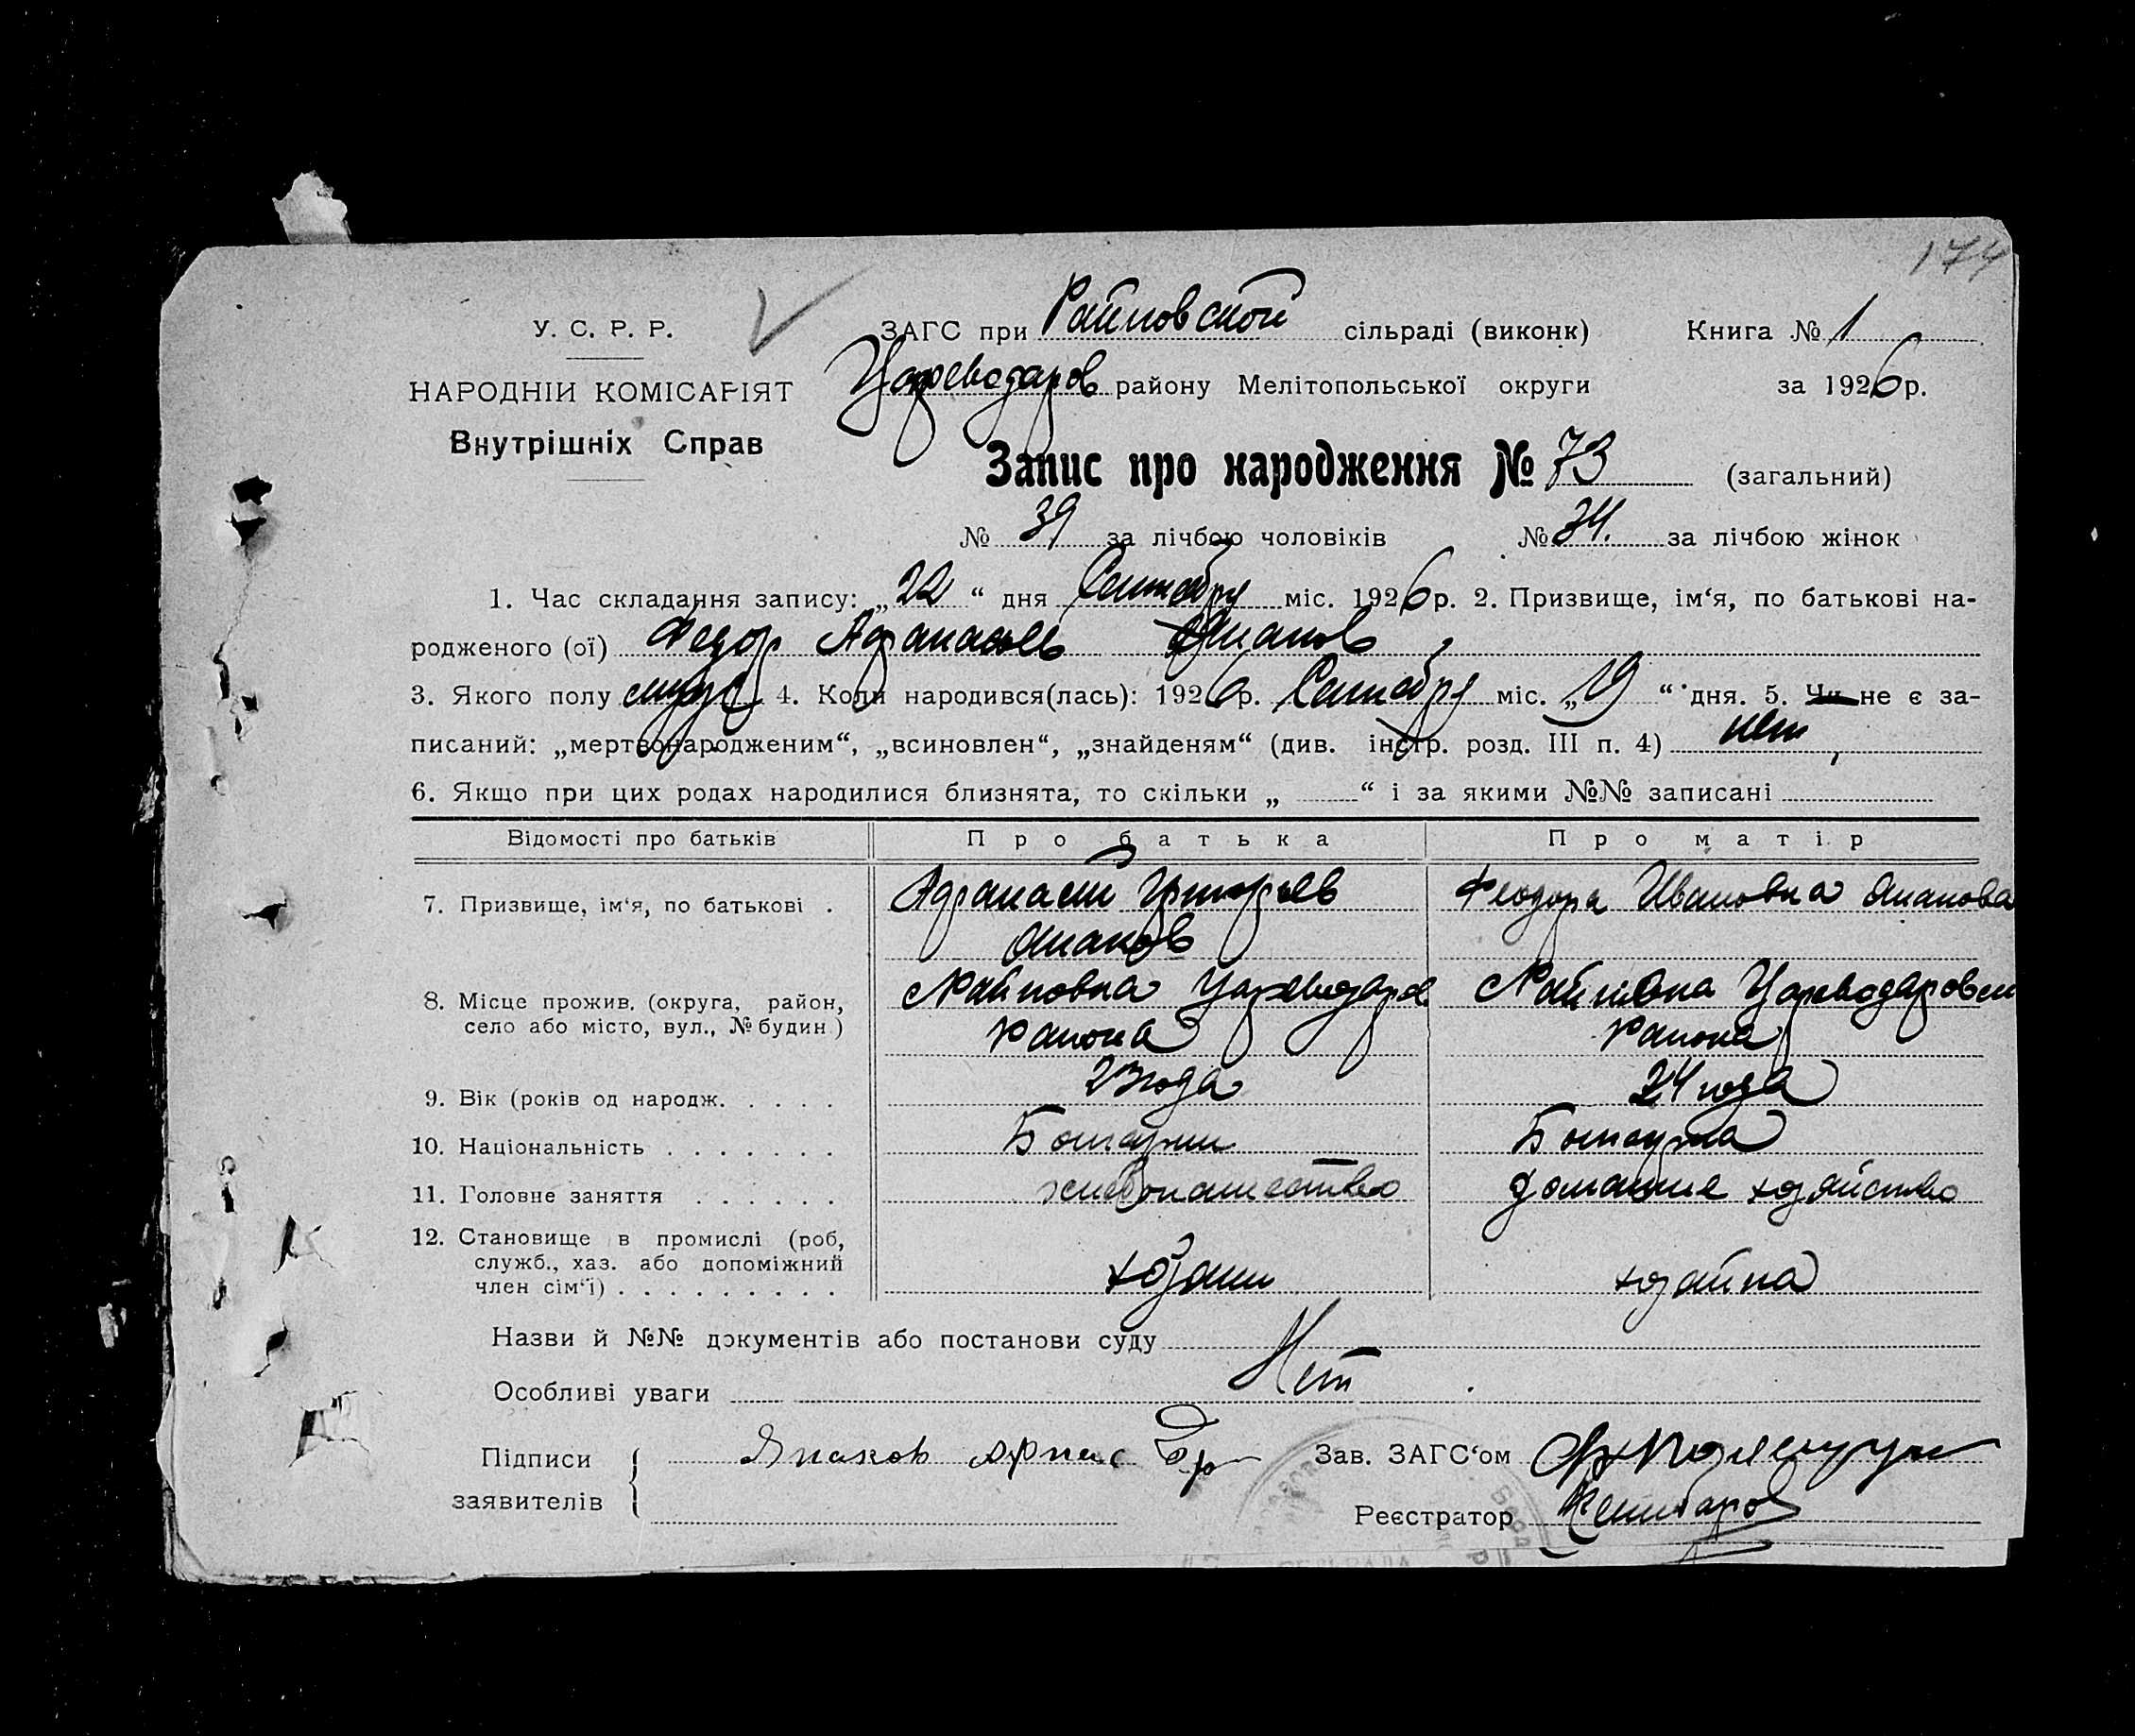 174
У. С. Р. Р.
ЗАГС при Райновской сільраді (виконк) Книга № 1
НАРОДНІЙ КОМІСАРІЯТ
Цареводаров району Мелітопольської округи за 1926 р.
Внутрішніх Справ
Запис про народження № 73 (загальний)
№ 39 за лічбою чоловіків № 34. за лічбою жінок
1. Час складання запису: „22“ дня Сентября міс. 1926 р. 2. Призвище, ім‘я, по батькові на-
родженого (ої) Федор Афанасьев Япаков
3. Якого полу мужс 4. Коли народився(лась): 1926 р. Сентября міс. „19“ дня. 5. Чи не є за-
писаний: „мертвонародженим“, „всиновлен“, „знайденям“ (див. інстр. розд. III п. 4) нет
6. Якщо при цих родах народилися близнята, то скільки „ “ і за якими №№ записані
Відомості про батьків Про батька Про матір
7. Призвище, ім‘я, по батькові . Афанасий Григорьев Феодора Ивановна Япакова
Япаков
8. Місце прожив. (округа, район, Райновка Цареводаров Райновка Цареводаровск
село або місто, вул., № будин) района района
9. Вік (років од народж. . . . . 23 года 24 года
10. Національність . . . . . . . Болгарин Болгарка
11. Головне заняття . . . . . . хлебопашество домашнее хозяйство
12. Становище в промислі (роб,
служб., хаз. або допоміжний
член сім‘ї) . . . . . . . . . хозяин хозяйка
Назви й №№ документів або постанови суду
Особливі уваги Нет
Підписи Япаков Зав. ЗАГС‘ом
заявителів
Реєстратор